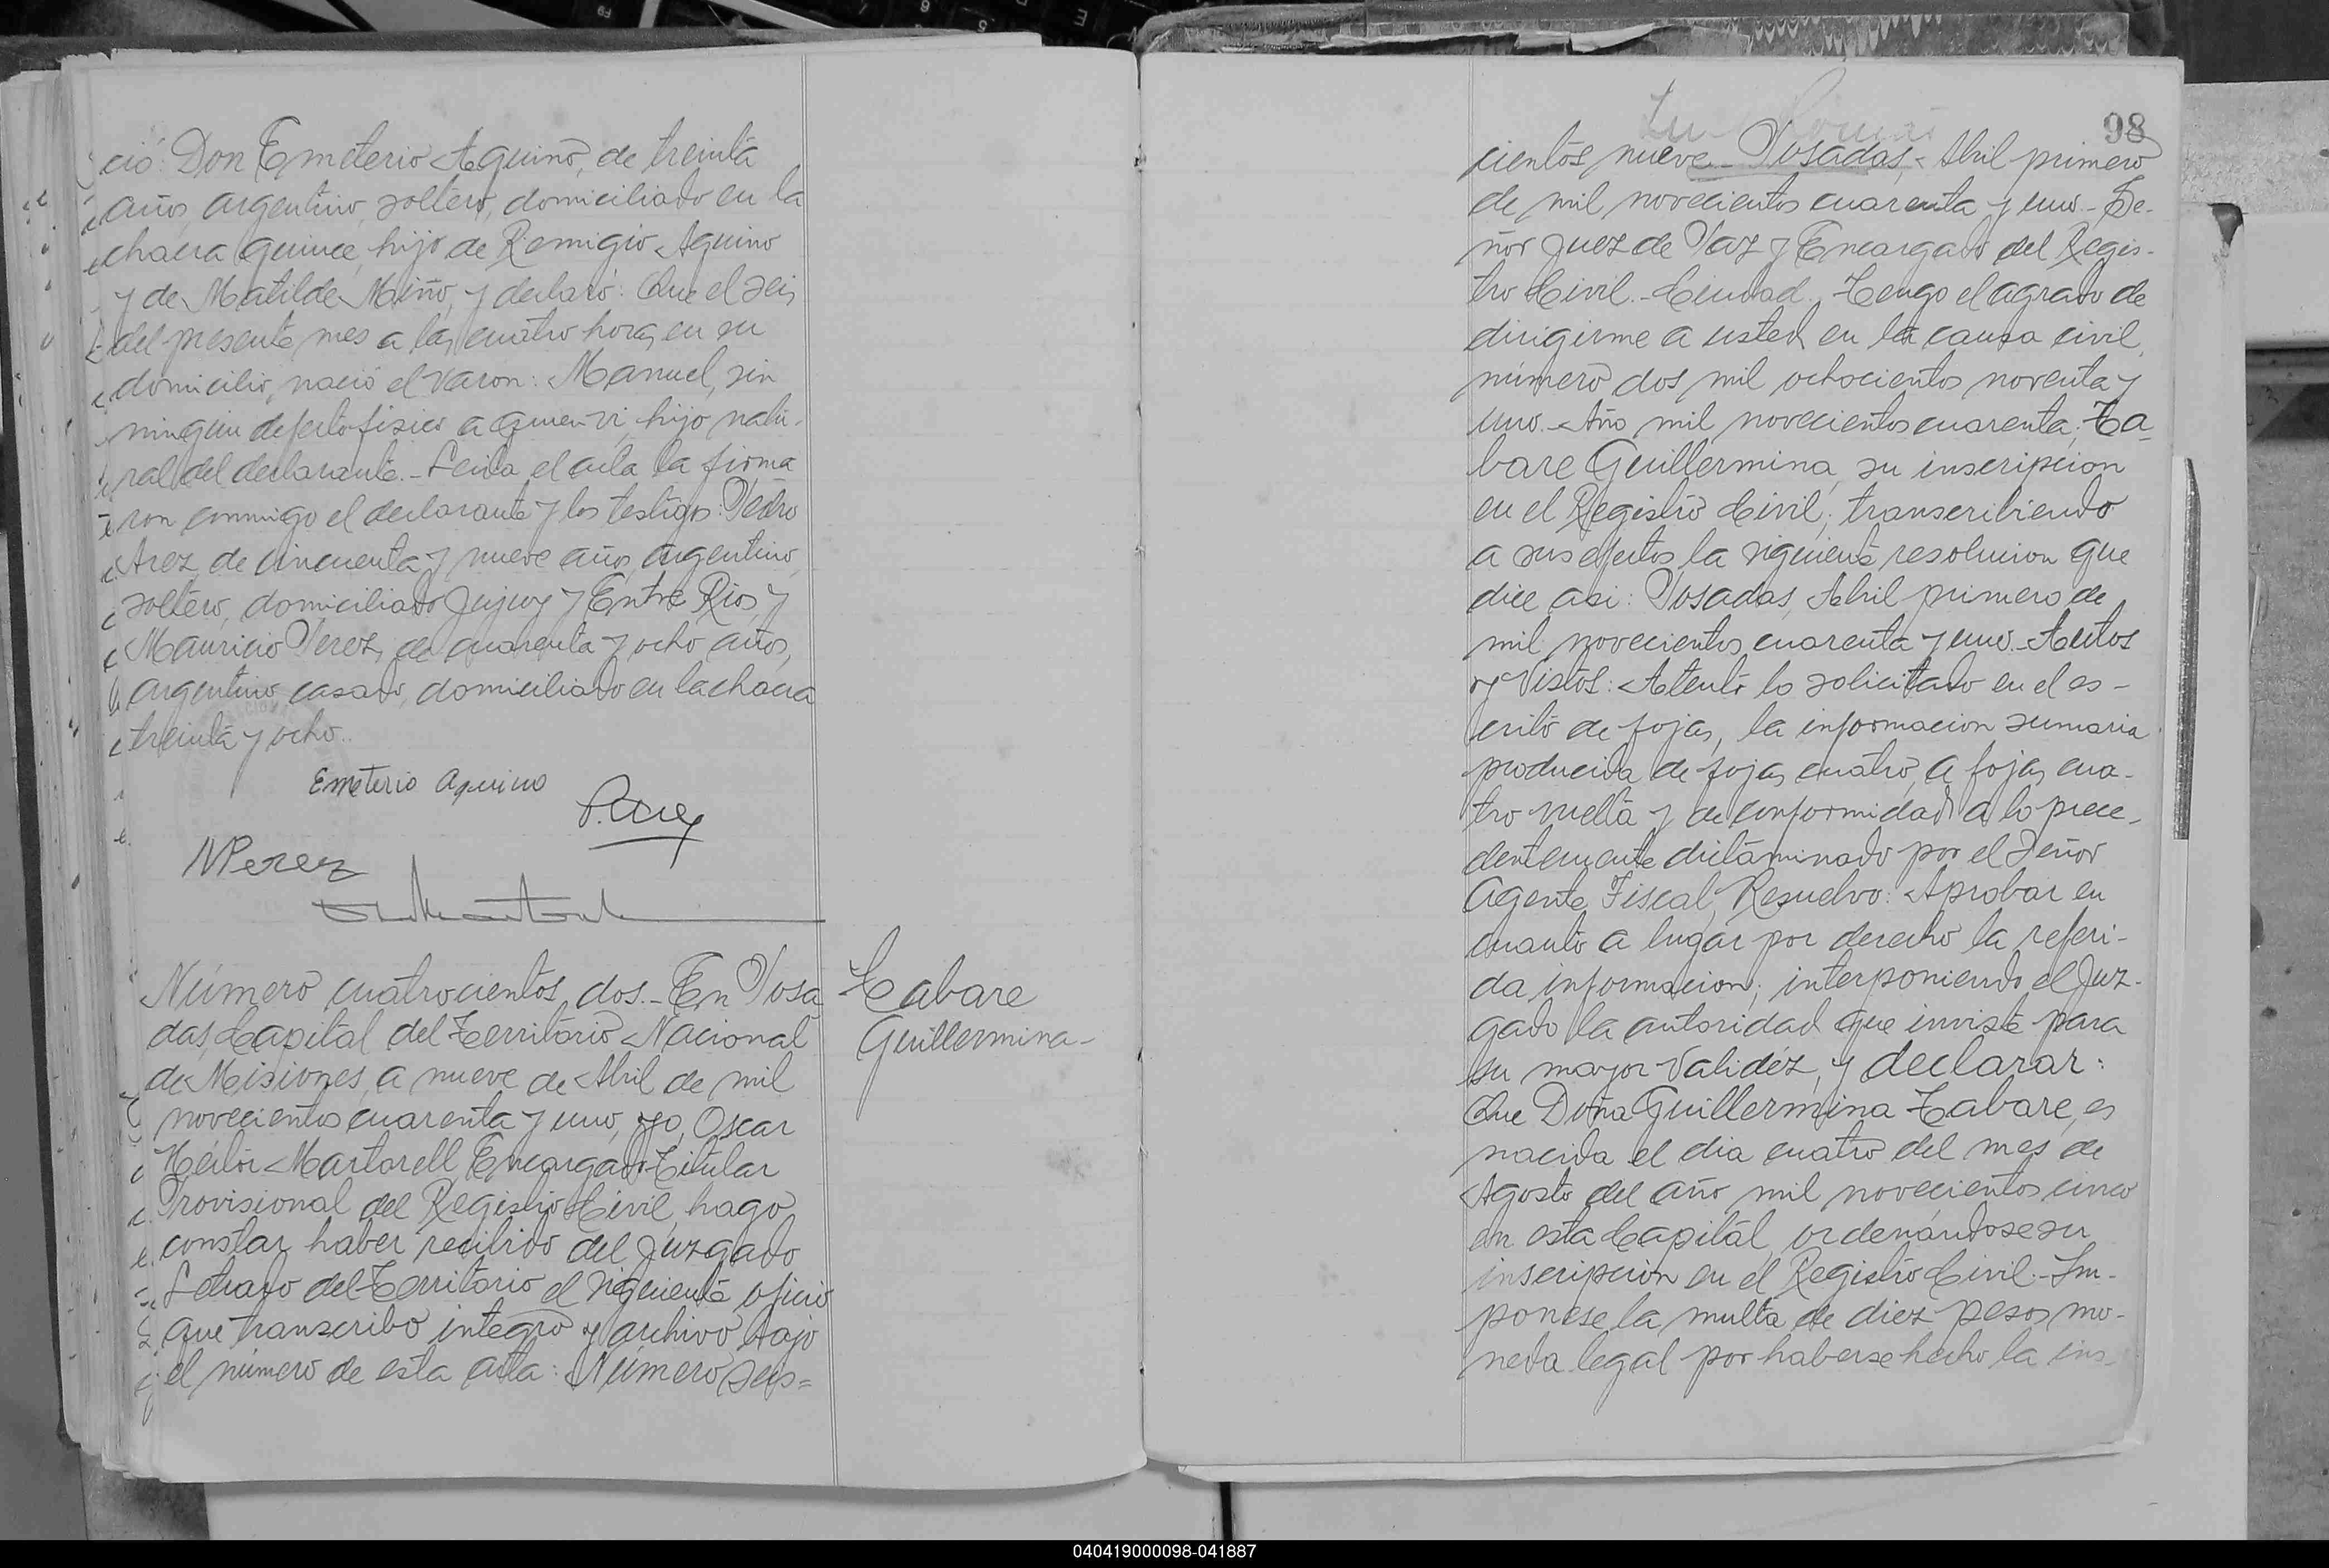 ció: Don Emeterio Aquino, de treinta
años, argentino, soltero, domiciliado en la
chacra quince, hijo de Remigio Aquino
y de Matilde Miño, y declaró: Que el seis
del presente mes a las cuatro horas, en su
domicilio, nació el varon: Manuel, sin
ningun defecto fisico a quien vi, hijo natu-
ral del declarante.- Leida el acta la firma
ron conmigo el declarante y los testigos: Pedro
Arez, de cincuenta y nueve años, argentino,
soltero, domiciliado Jujuy y Entre Rios, y
Mauricio Perez, de cuarenta y ocho años,
argentino, casado, domiciliado en la chacra
treinta y ocho.
Emeterio Aquino
P. Arez
MPerez
Número cuatrocientos dos.- En Posa
das, Capital del Territorio Nacional
de Misiones, a nueve de Abril de mil
novecientos cuarenta y uno, yo, Oscar
Héctor Martorell, Encargado Titular
Provisional del Registro Civil, hago
constar haber recibido del Juzgado
Letrado del Territorio el siguiente oficio
que transcribo integro y archivo bajo
el número de esta acta: Número seis=
Tabare
Guillermina-
98
cientos nueve- Posadas, Abril primero
de mil novecientos cuarenta y uno.- Se-
ñor Juez de Paz y Encargado del Regis-
tro Civil.- Ciudad. Tengo el agrado de
dirigirme a usted en la causa civil,
número dos mil ochocientos noventa y
uno.- Año mil novecientos cuarenta; Ta-
bare Guillermina, su inscripcion
en el Registro Civil; transcribiendo
a sus efectos la siguiente resolucion que
dice asi: Posadas, Abril primero de
mil novecientos cuarenta y uno.- Autos
y Vistos: Atento lo solicitado en el es-
crito de fojas, la informacion sumaria
producida de fojas cuatro, a fojas cua-
tro vuelta y de conformidad a lo prece-
dentemente dictaminado por el Señor
Agente Fiscal, Resuelvo: Aprobar en
cuanto a lugar por derecho la referi-
da informacion; interponiendo el Juz-
gado la autoridad que inviste para
su mayor validéz, y declarar:
Que Doña Guillermina Tabare, es
nacida el dia cuatro del mes de
Agosto del año mil novecientos cinco
en esta Capital, ordenándose su
inscripcion en el Registro Civil.- Im-
ponese la multa de diez pesos mo-
neda legal por haberse hecho la ins-
040419000098-041887